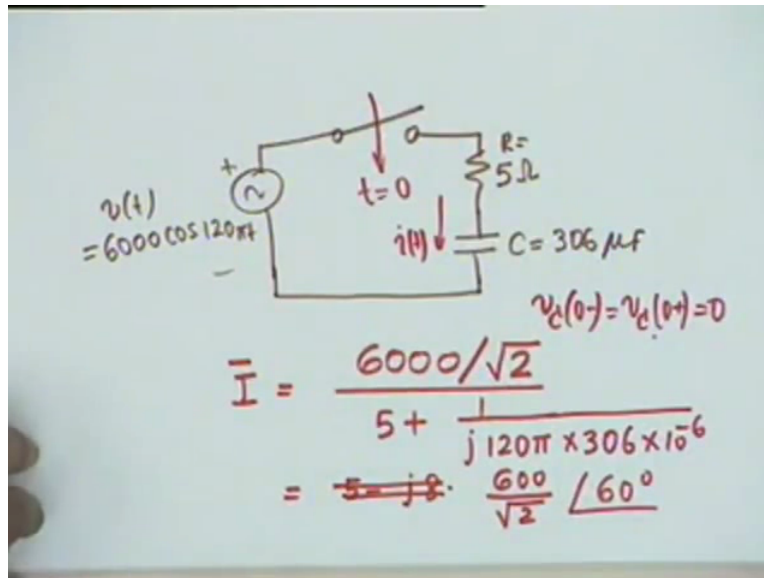 R=
5Ω
t=0
v(t)
=6000cos120πt
+
~
−
i(t)
C = 306 μf
v_c(0-)=v_c(0+)=0
Ī = 6000/√2 / (5+ 1/(j120π×306×10⁻⁶))
= 5- j8. 600/√2 ∠60°